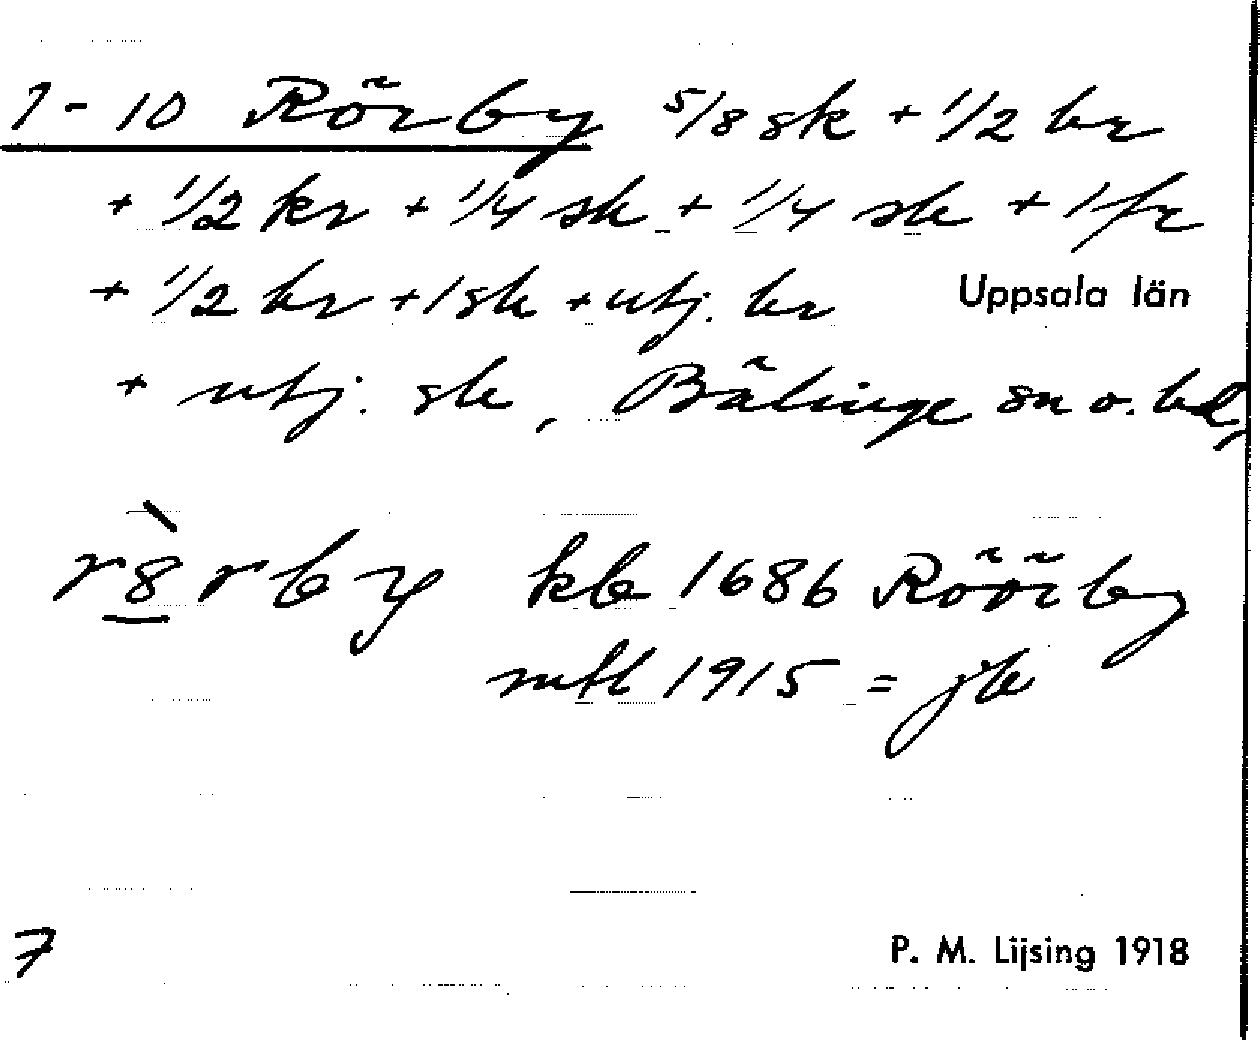 1-10 Rörby 5/8 sk + 1/2 kr
+ 1/2 kr + 1/4 sk + 1/4 sk + 1 fr
+ 1/2 kr + 1 sk + utj. kr
Uppsala län
+ utj. sk, Bälinge sn o. hd,
r8̀rby kb 1686 Röörby
mtl 1915 = jb
7
P. M. Lijsing 1918